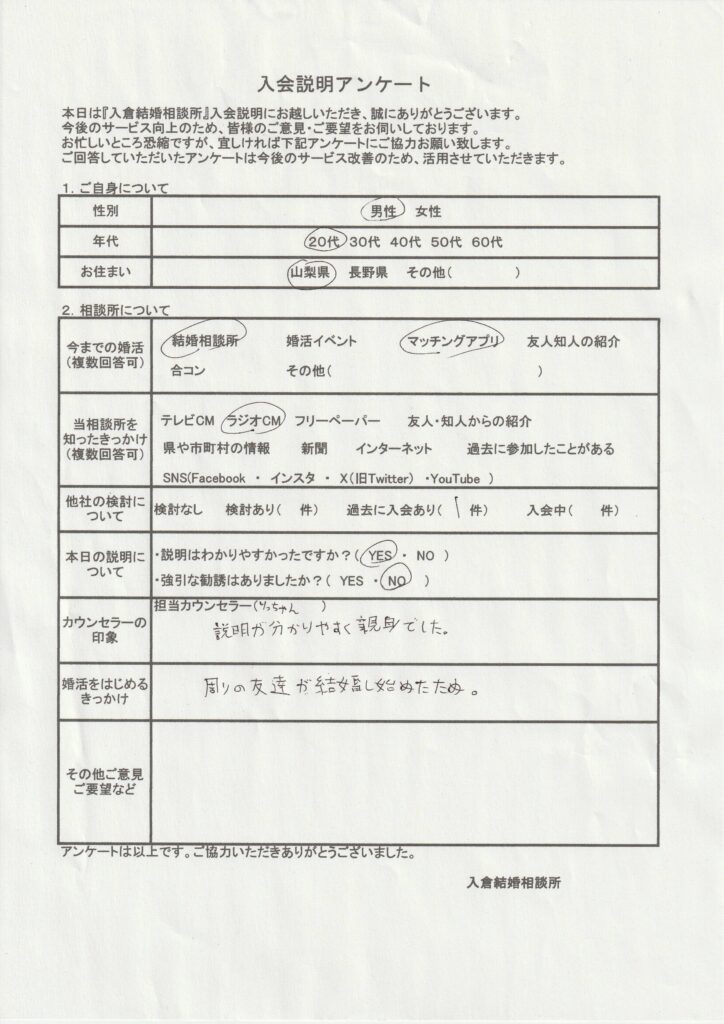 入会説明アンケート
本日は『入倉結婚相談所』入会説明にお越しいただき、誠にありがとうございます。
今後のサービス向上のため、皆様のご意見・ご要望をお伺いしております。
お忙しいところ恐縮ですが、宜しければ下記アンケートにご協力お願い致します。
ご回答していただいたアンケートは今後のサービス改善のため、活用させていただきます。
1. ご自身について
性別 男性 女性
年代 20代 30代 40代 50代 60代
お住まい 山梨県 長野県 その他( )
2. 相談所について
今までの婚活
(複数回答可)
結婚相談所 婚活イベント マッチングアプリ 友人知人の紹介
合コン その他( )
当相談所を
知ったきっかけ
(複数回答可)
テレビCM ラジオCM フリーペーパー 友人・知人からの紹介
県や市町村の情報 新聞 インターネット 過去に参加したことがある
SNS(Facebook ・ インスタ ・ X(旧Twitter) ・YouTube )
他社の検討に
ついて
検討なし 検討あり( 件) 過去に入会あり( 1 件) 入会中( 件)
本日の説明に
ついて
・説明はわかりやすかったですか?( YES ・ NO )
・強引な勧誘はありましたか?( YES ・ NO )
カウンセラーの
印象
担当カウンセラー(りっちゃん )
説明が分かりやすく親身でした。
婚活をはじめる
きっかけ
周りの友達が結婚し始めたため。
その他ご意見
ご要望など
アンケートは以上です。ご協力いただきありがとうございました。
入倉結婚相談所